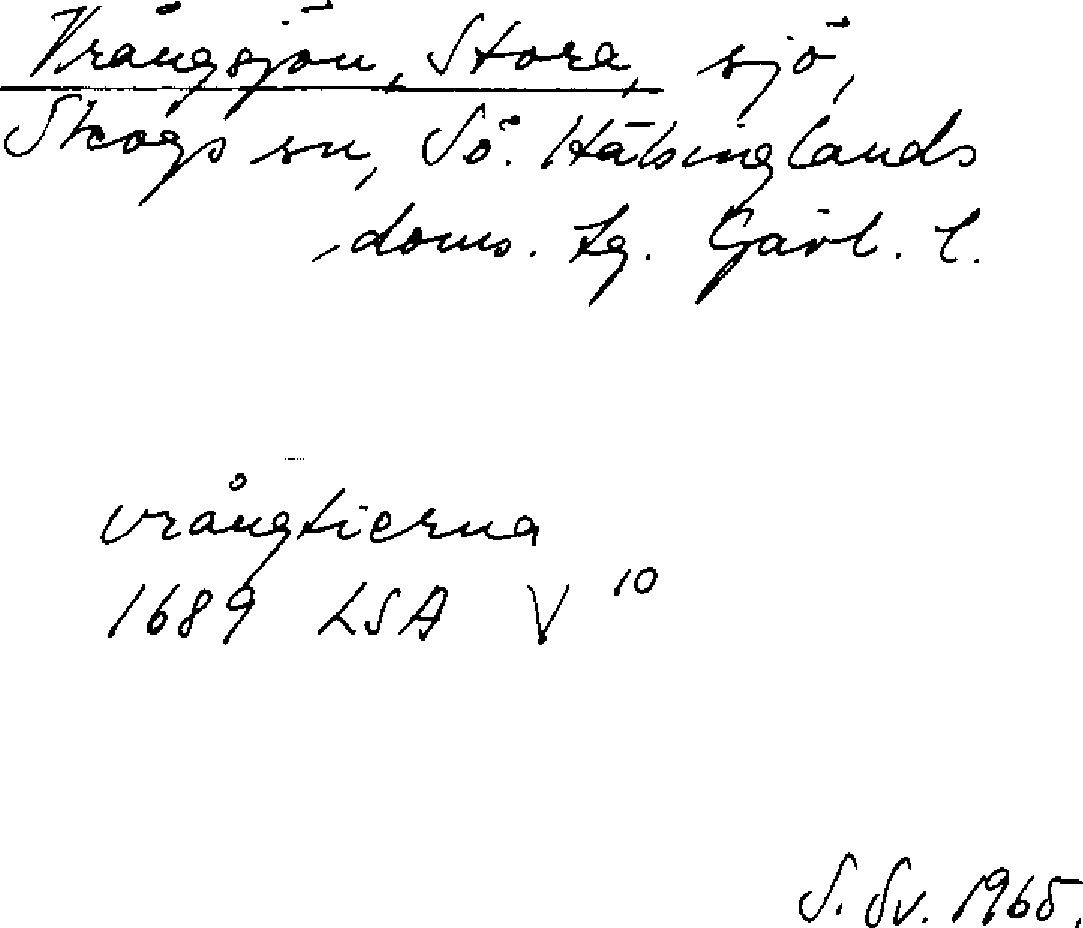 Vrångsjön, Stora, sjö,
Skogs sn, Sö. Hälsinglands
doms. tg. Gävl. l.
vrångtierna
1689 LSA V 10
S. Sv. 1965.